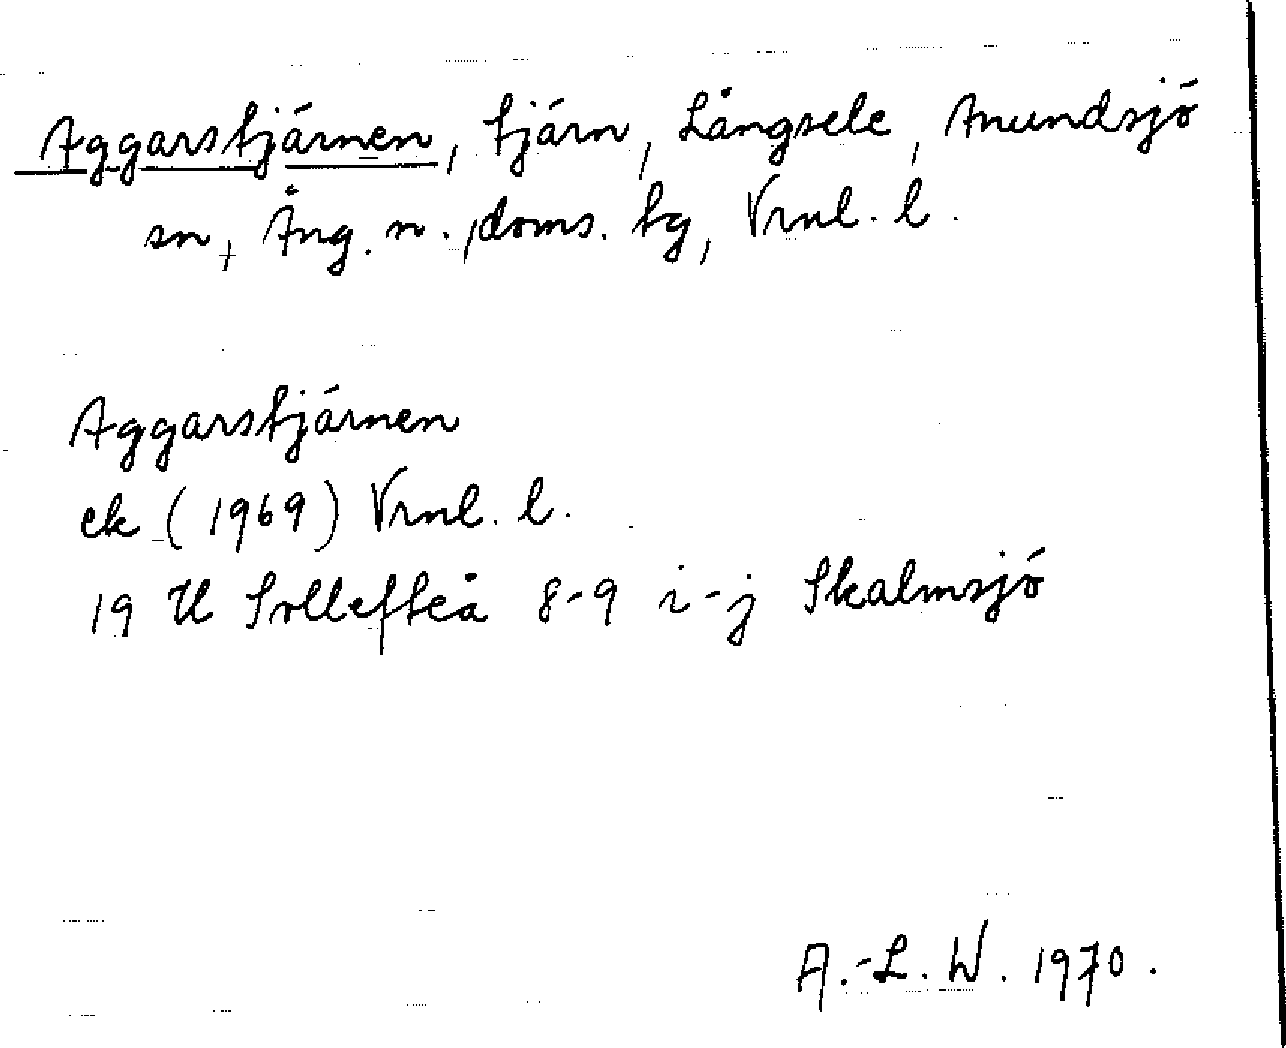 Aggarstjärnen, tjärn, Långsele, Anundsjö
sn, Ång. n., doms. tg, Vrnl. l.
Aggarstjärnen
ek (1969) Vrnl. l.
19 H Sollefteå 8-9 i-j Skalmsjö
A.-L. W. 1970.